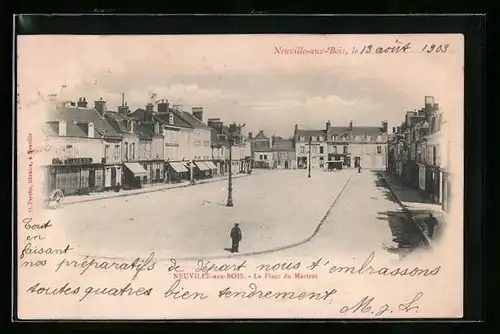 Neuville-aux-Bois, le 13 août 1903
Tout
en
faisant
nos préparatifs de départ nous t'embrassons
NEUVILLE-aux-BOIS. - La Place du Martroi
toutes quatres bien tendrement.
M. L.